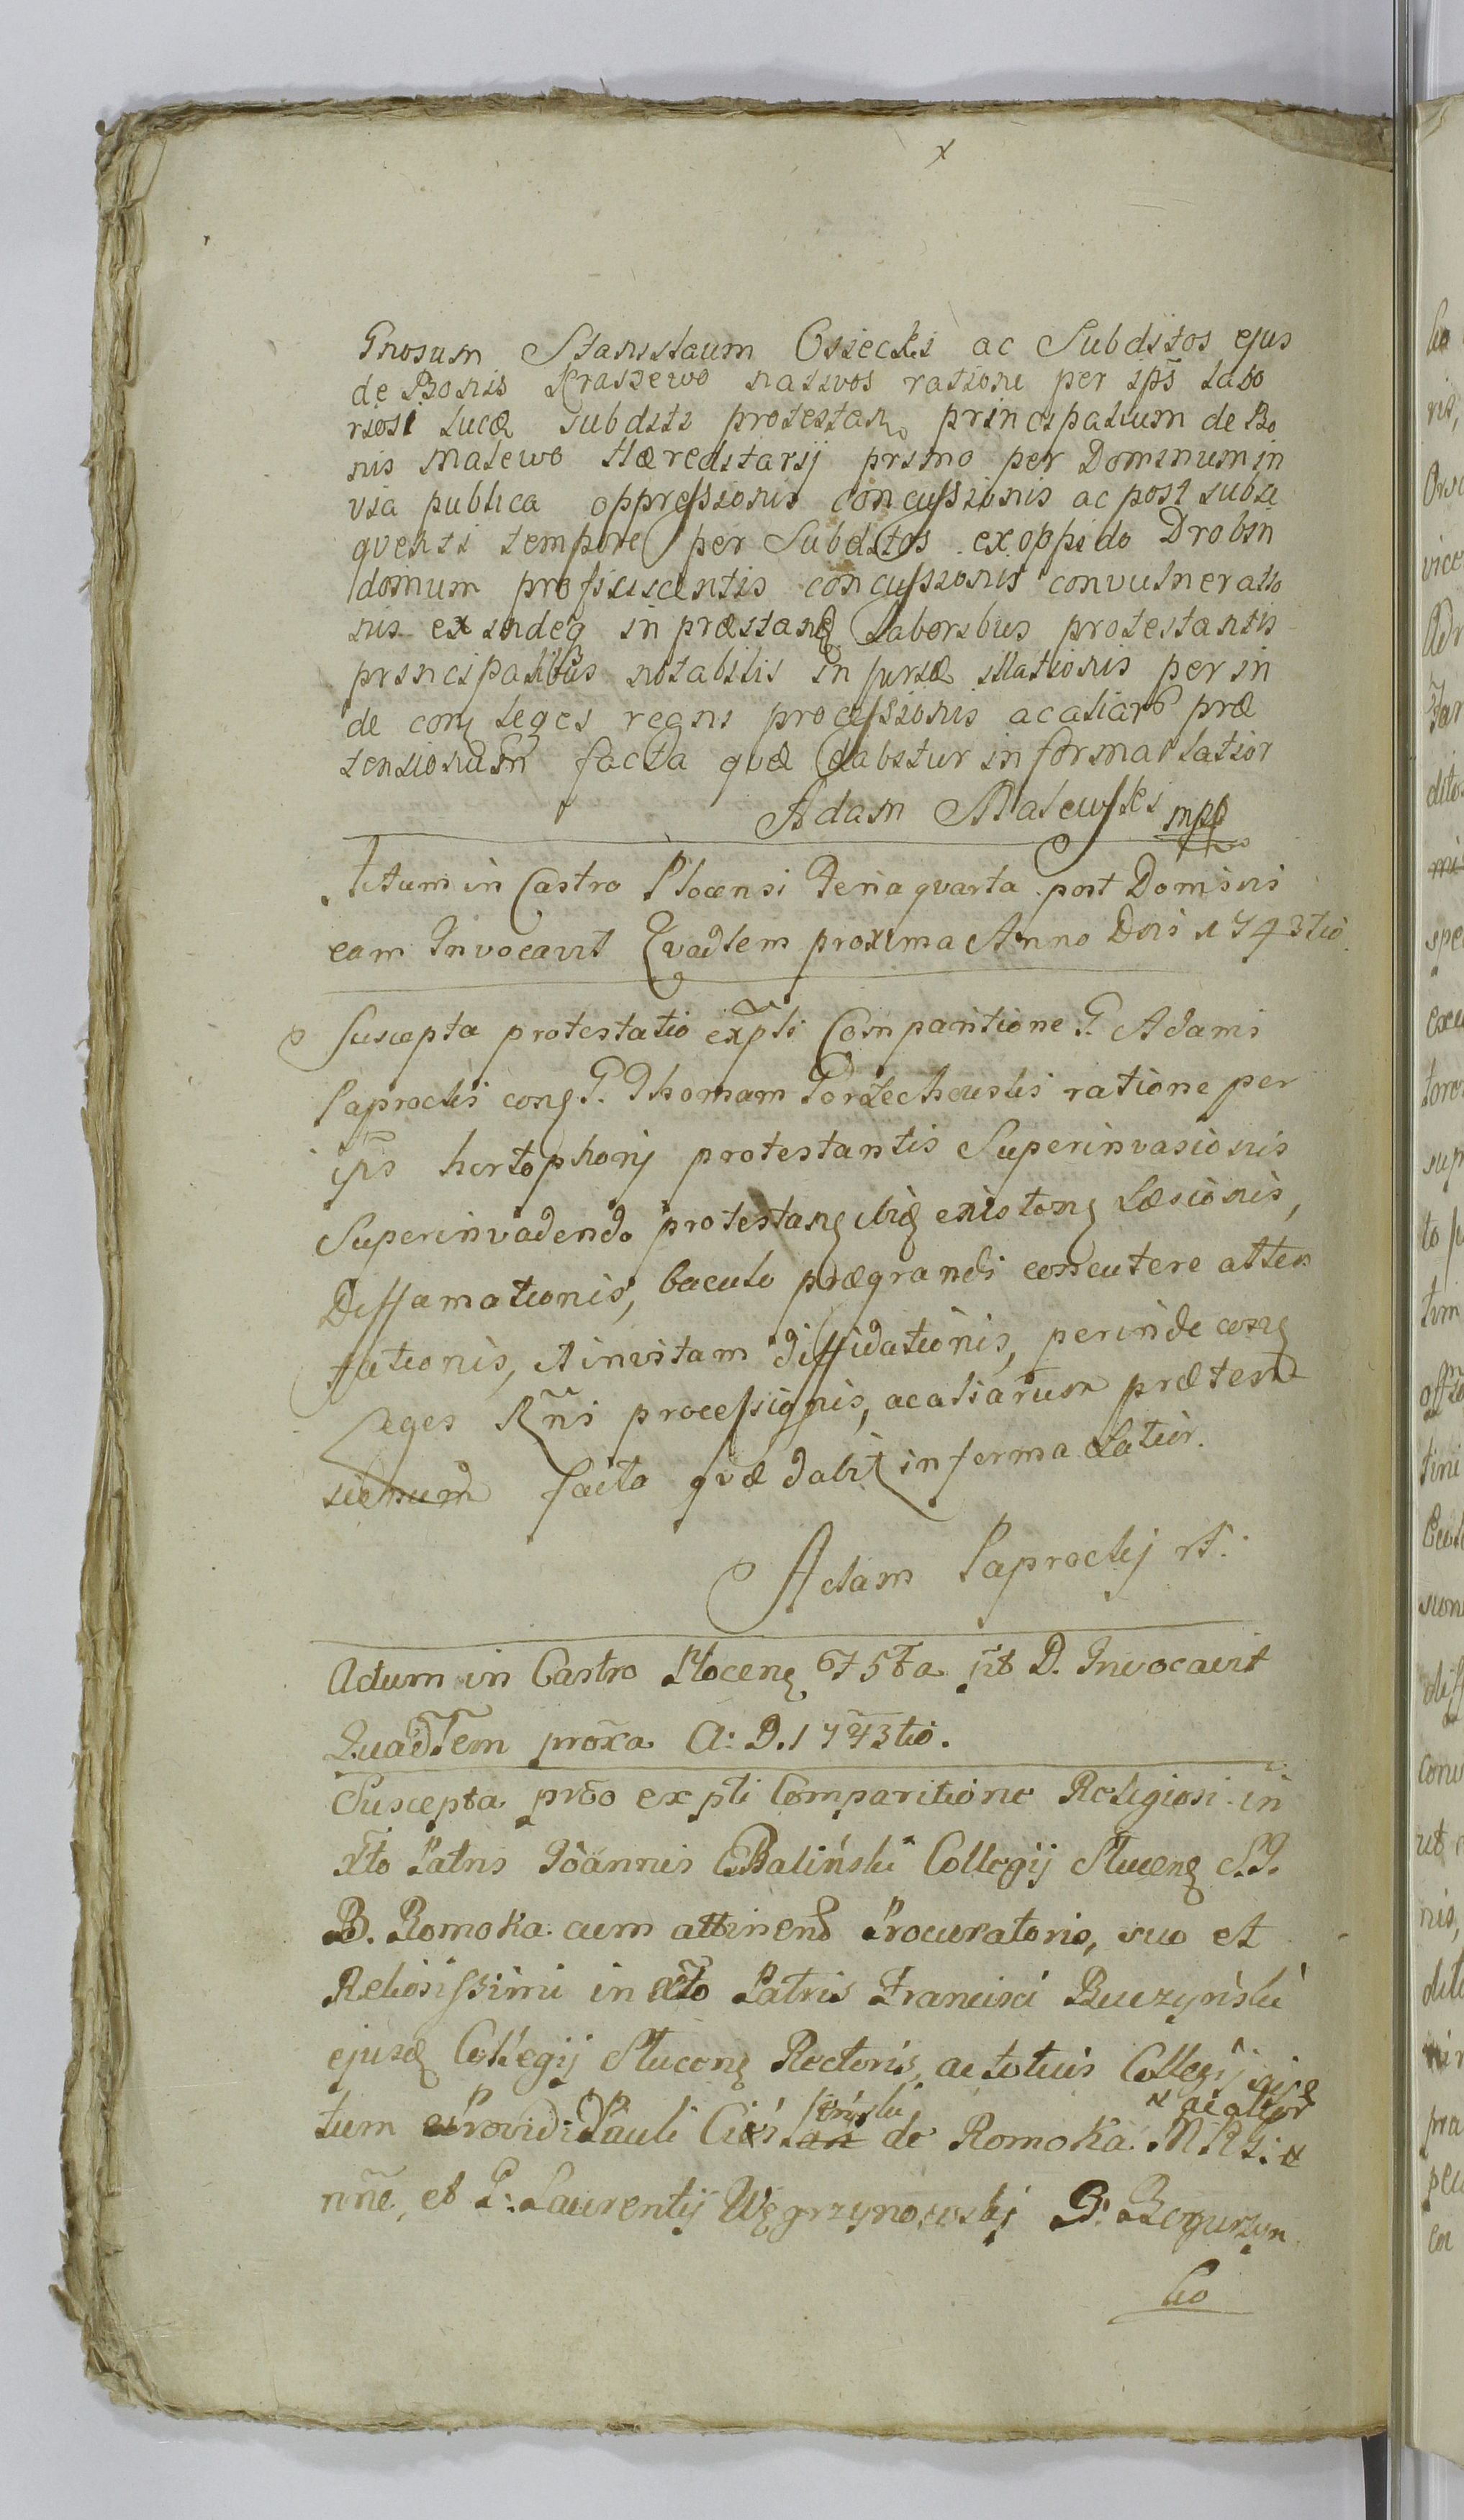 x
Gnosum Stanislaum Ossiecki ac Subditos ejus
de Bonis Kraszewo nativos ratione per ips labo
riosi Lucæ subditi protestan principalium de Bo
nis Malewo Hæreditarij primo per Dominum in
via publica oppressionis concussionis ac post subse
quenti tempore per Subditos ex oppido Drobin
domum proficiscentis concussionis convulneratio
nis ex indeq in præstand Laboribus protestantis
principalibus notabilis injuriæ illationis per in
de con leges regni processionis ac aliar præ
tensionum facta quæ dabitur in forma latior
Adam Malewski mpp
Actum in Castro Plocensi Feria quarta post Domini
cam Invocavit Qvadlem proxima Anno Dni 1743tio
Suscepta protestatio ex pti Comparitione G. Adami
Paprocki con G. Thomam Gorzechowski ratione per
ips hortophorij protestantis Superinvasionis
Superinvadendo protestan ibid existen Læsionis,
Diffamationis, baculo prægrandi concutere atten
tationis, et in vitam diffidationis, perinde con
Leges Rni processionis, ac aliarum præten
sionum facta qvæ dabit in forma Latior.
Adam Paprockij
Actum in Castro Plocen F 5ta pt D. Invocavit
Quadlem proxa A: D. 1743tio.
Suscepta pro ex pti Comparitione Religiosi in
xto Patris Joannis Baliński Collegij Plucen S.J.
B. Romoka cum attinen Procuratoris, suo et
Reliosissimi in xto Patris Francisci Buczyński
ejusd Collegij Plucen Rectoris, ac totius Collegij
tum Providi Pauli de Romoka
ac alior
nne, et G: Laurentij Węgrzynowski